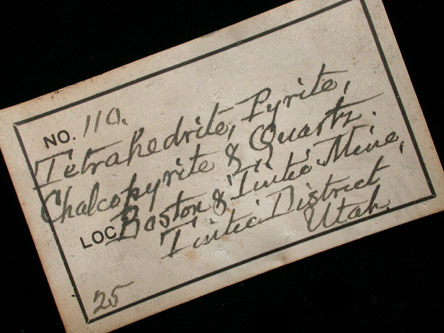 NO. 110.
Tetrahedrite, Pyrite,
Chalcopyrite & Quartz.
LOC. Boston & Tintic Mine,
Tintic District,
Utah.
25